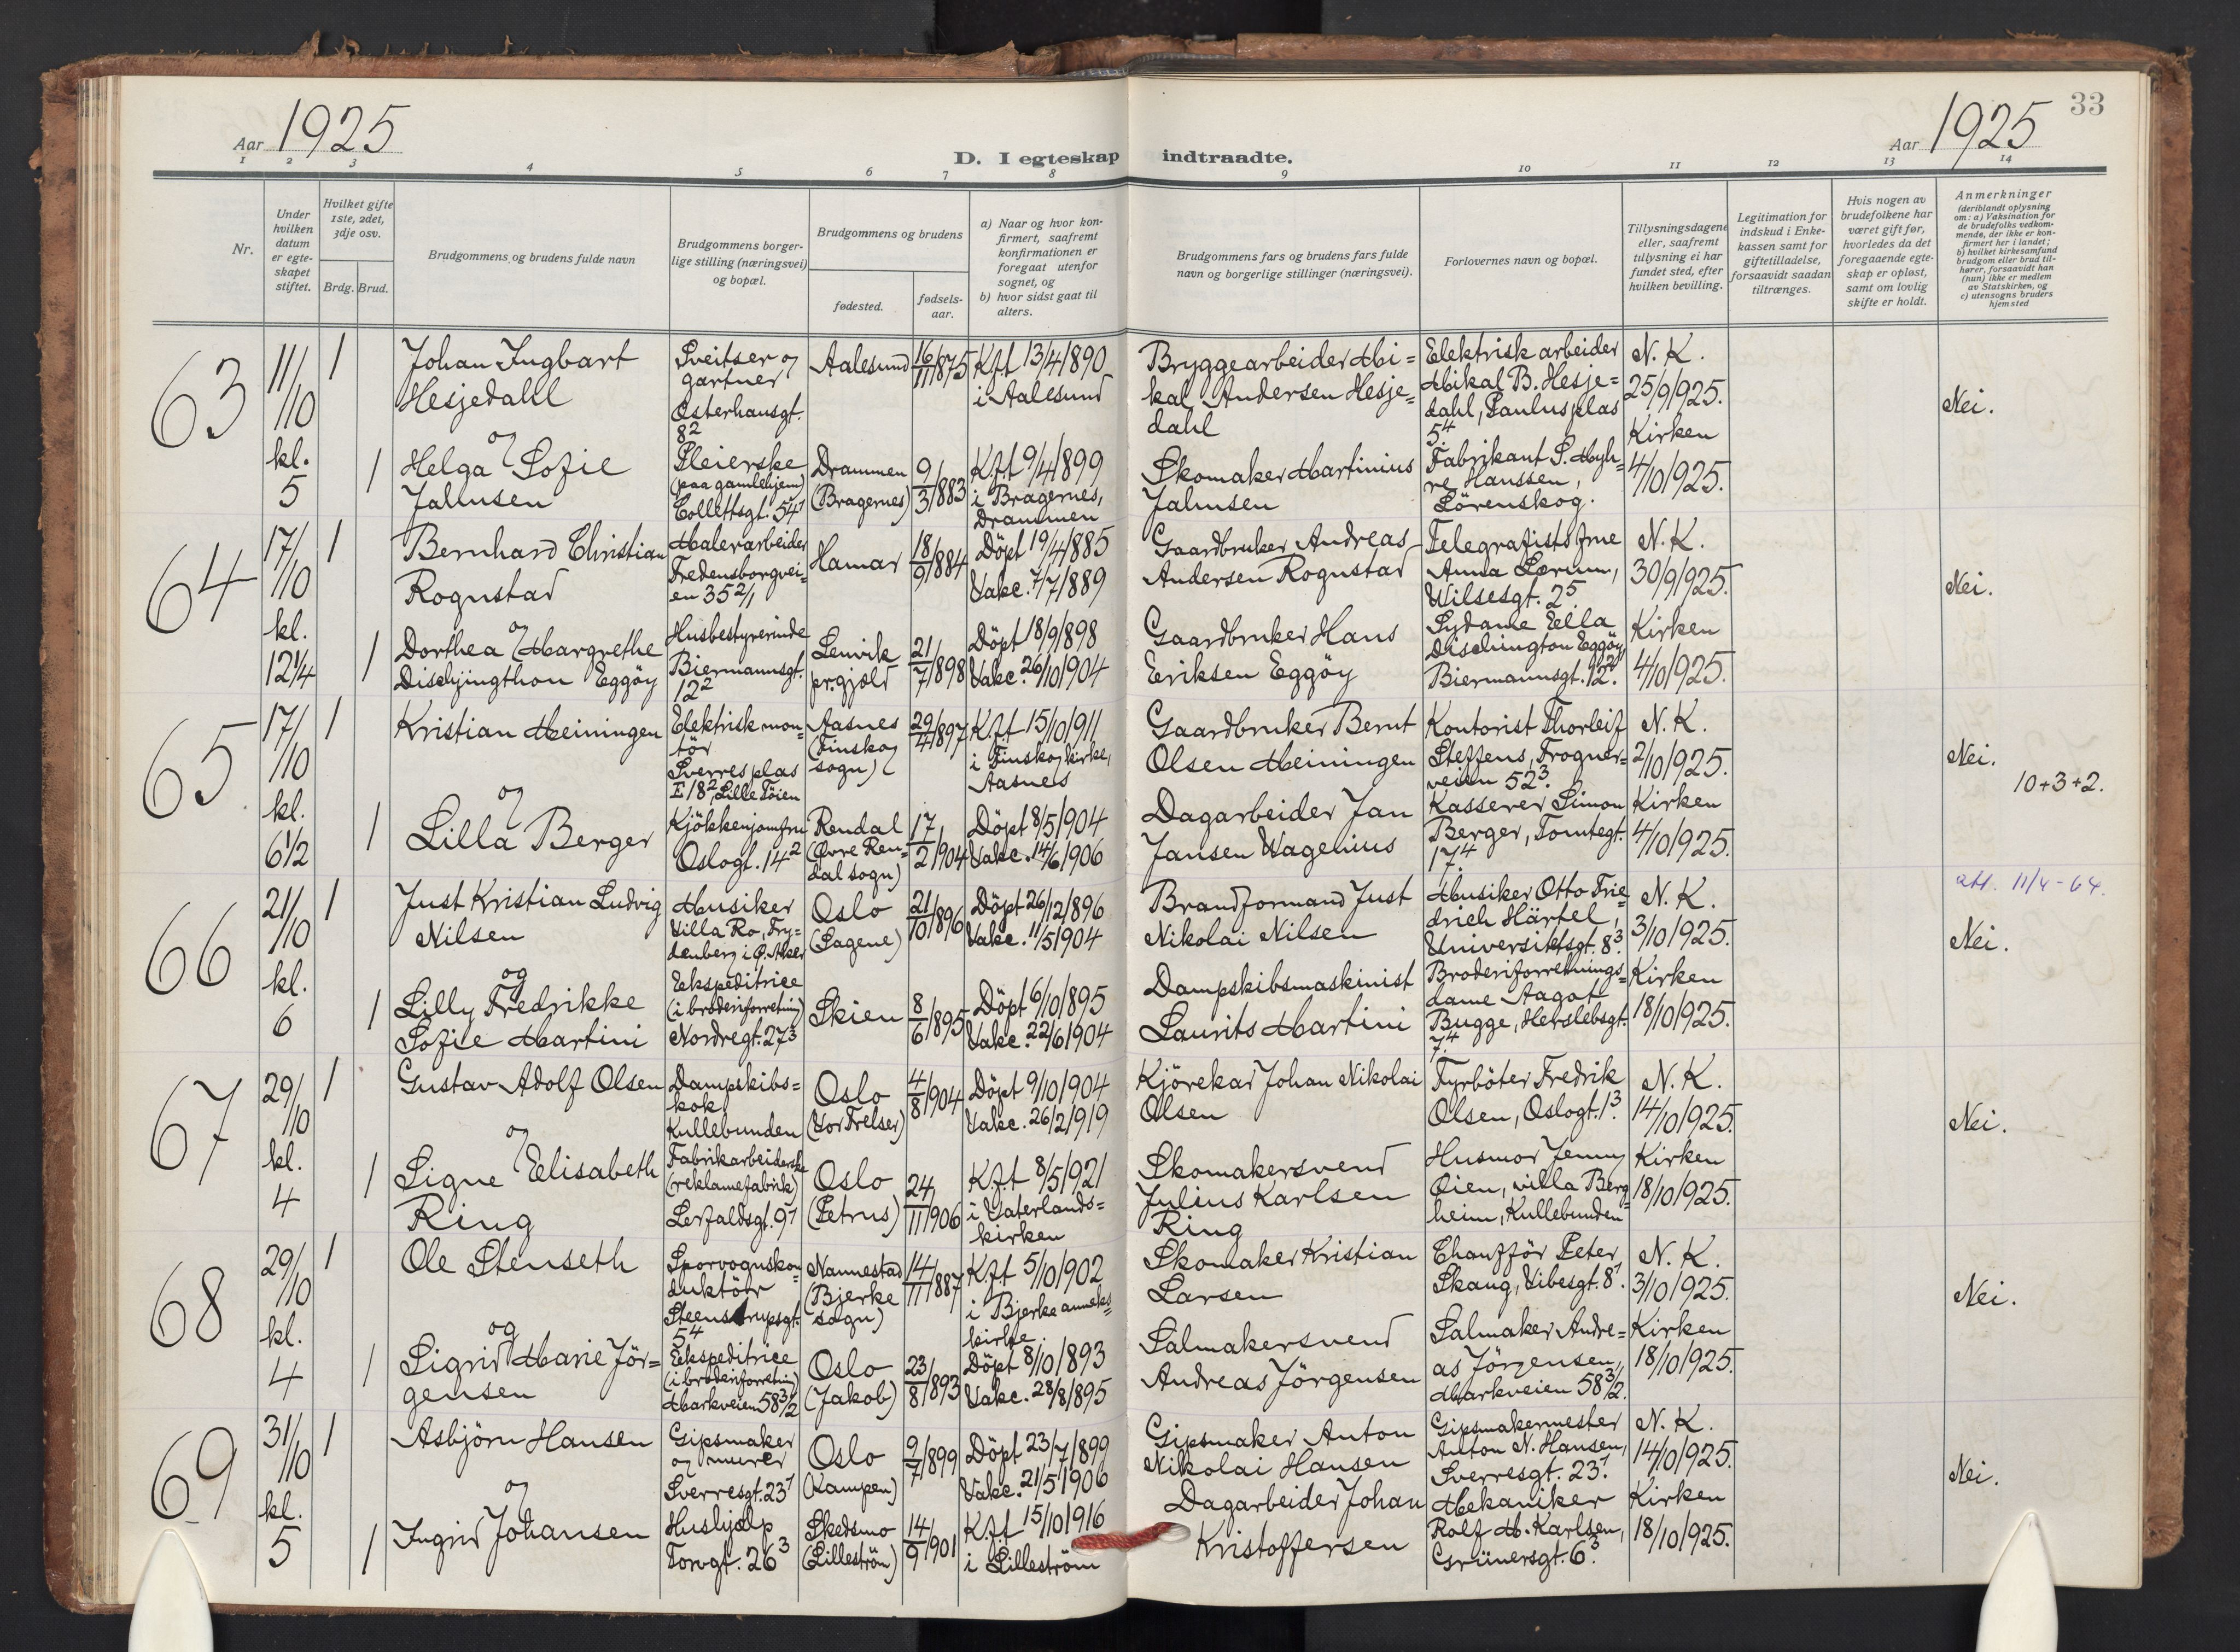 33
Aar 1925
D. I egteskap indtraadte.
Aar 1925
1 2 3 4 5 6 7 8 9 10 11 12 13 14
Nr.
Under
hvilken
datum
er egte-
skapet
stiftet.
Hvilket gifte
1ste, 2det,
3dje osv.
Brdg. Brud.
Brudgommens og brudens fulde navn
Brudgommens borger-
lige stilling (næringsvei)
og bopæl.
Brudgommens og brudens
fødested.
fødsels-
aar.
a) Naar og hvor kon-
firmert, saafremt
konfirmationen er
foregaat utenfor
sognet, og
b) hvor sidst gaat til
alters.
Brudgommens fars og brudens fars fulde
navn og borgerlige stillinger (næringsvei).
Forlovernes navn og bopæl.
Tillysningsdagene
eller, saafremt
tillysning ei har
fundet sted, efter
hvilken bevilling.
Legitimation for
indskud i Enke-
kassen samt for
giftetilladelse,
forsaavidt saadan
tiltrænges.
Hvis nogen av
brudefolkene har
været gift før,
hvorledes da det
foregaaende egte-
skap er opløst,
samt om lovlig
skifte er holdt.
Anmerkninger
(deriblandt oplysning
om: a) Vaksination for
de brudefolks vedkom-
mende, der ikke er kon-
firmert her i landet;
b) hvilket kirkesamfund
brudgom eller brud til-
hører, forsaavidt han
(hun) ikke er medlem
av Statskirken, og
c) utensogns bruders
hjemsted
63
11/10
kl.
5
1
Johan Ingbart
Hesjedahl
og
Sveitser og
gartner
Osterhausgt.
8²
Aalesund
16/11 1875
K.ft 13/4 1890
i Aalesund
Bryggearbeider Mi=
kal Andersen Hesje=
dahl
Elektrisk arbeider
Mikal B. Hesje=
dahl, Paulus plas
5⁴.
N. K.
25/9 1925.
Kirken
4/10 1925.
Nei.
1
Helga Sofie
Jahnsen
Pleierske
(paa gamlehjem)
Collettsgt. 54¹
Drammen
(Bragernes)
9/3 1883
K.ft 9/4 1899
i Bragernes,
Drammen
Skomaker Martinius
Jahnsen
Fabrikant S. Myh=
re Hanssen,
Lörenskog.
64
17/10
kl.
12¼
1
Bernhard Christian
Rognstad
og
Malerarbeider
Fredensborgvei=
en 35 2/1
Hamar
18/9 1884
Döpt 19/4 1885
Vakc. 7/7 1889
Gaardbruker Andreas
Andersen Rognstad
Telegrafistsfrue
Anna Lorum,
Wilsesgt. 2⁵
N. K.
30/9 1925.
Kirken
4/10 1925.
Nei.
1
Dorthea Margrethe
Dischjingthon Eggöy
Husbestyrerinde
Biermannsgt.
12²
Lenvik
pr.gjeld
21/7 1898
Döpt 18/9 1898
Vakc. 26/10 1904
Gaardbruker Hans
Eriksen Eggöy
Sydame Ella
Dischington Eggöy,
Biermannsgt. 12².
65
17/10
kl.
6½
1
Kristian Meiningen
og
Elektrisk mon=
tör
Sverres plas
E 18², Lille Töien
Aasnes
(Finskog
sogn)
29/4 1897
K.ft 15/10 1911
i Finskog kirke,
Aasnes
Gaardbruker Bernt
Olsen Meiningen
Kontorist Thorleif
Steffens, Frogner=
veien 52³.
N. K.
2/10 1925.
Kirken
4/10 1925.
Nei.
10+3+2.
1
Lilla Berger
Kjökkenjomfru
Oslogt. 14²
Rendal
(Øvre Ren=
dal sogn)
17/2 1904
Döpt 8/5 1904
Vakc. 14/6 1906
Dagarbeider Jan
Jansen Wagenius
Kasserer Simon
Berger, Tomtegt.
17⁴.
66
21/10
kl.
6
1
Just Kristian Ludvig
Nilsen
og
Musiker
Villa Ro, Fry=
denberg i Ø. Aker
Oslo
(Sagene)
21/10 1896
Döpt 26/12 1896
Vakc. 11/5 1904
Brandformand Just
Nikolai Nilsen
Musiker Otto Frie=
drich Härtel,
Universitetsgt. 8³.
N. K.
3/10 1925.
Kirken
18/10 1925.
att. 11/4-64.
Nei.
1
Lilly Fredrikke
Sofie Martini
Ekspeditrice
(i broderiforretning)
Nordregt. 27³
Skien
8/6 1895
Döpt 6/10 1895
Vakc. 22/6 1904
Dampskibsmaskinist
Laurits Martini
Broderiforretnings=
dame Aagot
Bugge, Herslebsgt.
7⁴.
67
29/10
kl.
4
1
Gustav Adolf Olsen
og
Dampskibs=
kok
Kullebunden
Oslo
(Vor Frelser)
4/8 1904
Döpt 9/10 1904
Vakc. 26/2 1919
Kjörekar Johan Nikolai
Olsen
Fyrböter Fredrik
Olsen, Oslogt. 1³.
N. K.
14/10 1925.
Kirken
18/10 1925.
Nei.
1
Signe Elisabeth
Ring
Fabrikarbeiderske
(reklamefabrik)
Lerfaldsgt. 9¹
Oslo
(Petrus)
24/11 1906
K.ft 8/5 1921
i Vaterlands=
kirken
Skomakersvend
Julius Karlsen
Ring
Husmor Jenny
Öien, villa Berg
heim, Kullebunden
68
29/10
kl.
4
1
Ole Stenseth
og
Sporvognskon=
duktör
Steenstrupsgt.
5⁴
Nannestad
(Bjerke
sogn)
14/11 1887
K.ft 5/10 1902
i Bjerke anneks=
kirke
Skomaker Kristian
Larsen
Chaufför Peter
Skaug, Vibesgt. 8¹.
N. K.
3/10 1925.
Kirken
18/10 1925.
Nei.
1
Sigrid Marie Jör=
gensen
Ekspeditrice
(i broderiforretning)
Markveien 58 3/2
Oslo
(Jakob)
23/8 1893
Döpt 8/10 1893
Vakc. 28/8 1895
Salmakersvend
Andreas Jörgensen
Salmaker Andre=
as Jörgensen,
Markveien 58 3/2.
69
31/10
kl.
5
1
Asbjörn Hansen
og
Gipsmaker
og murer
Sverresgt. 23¹
Oslo
(Kampen)
9/7 1899
Döpt 23/7 1899
Vakc. 21/5 1906
Gipsmaker Anton
Nikolai Hansen
Gipsmakermester
Anton N. Hansen,
Sverresgt. 23¹.
N. K.
14/10 1925.
Kirken
18/10 1925.
Nei.
1
Ingrid Johansen
Hushjælp
Torvgt. 26³
Skedsmo
(Lilleström)
14/9 1901
K.ft 15/10 1916
i Lilleström
Dagarbeider Johan
Kristoffersen
Mekaniker
Rolf M. Karlsen,
Grünersgt. 6³.